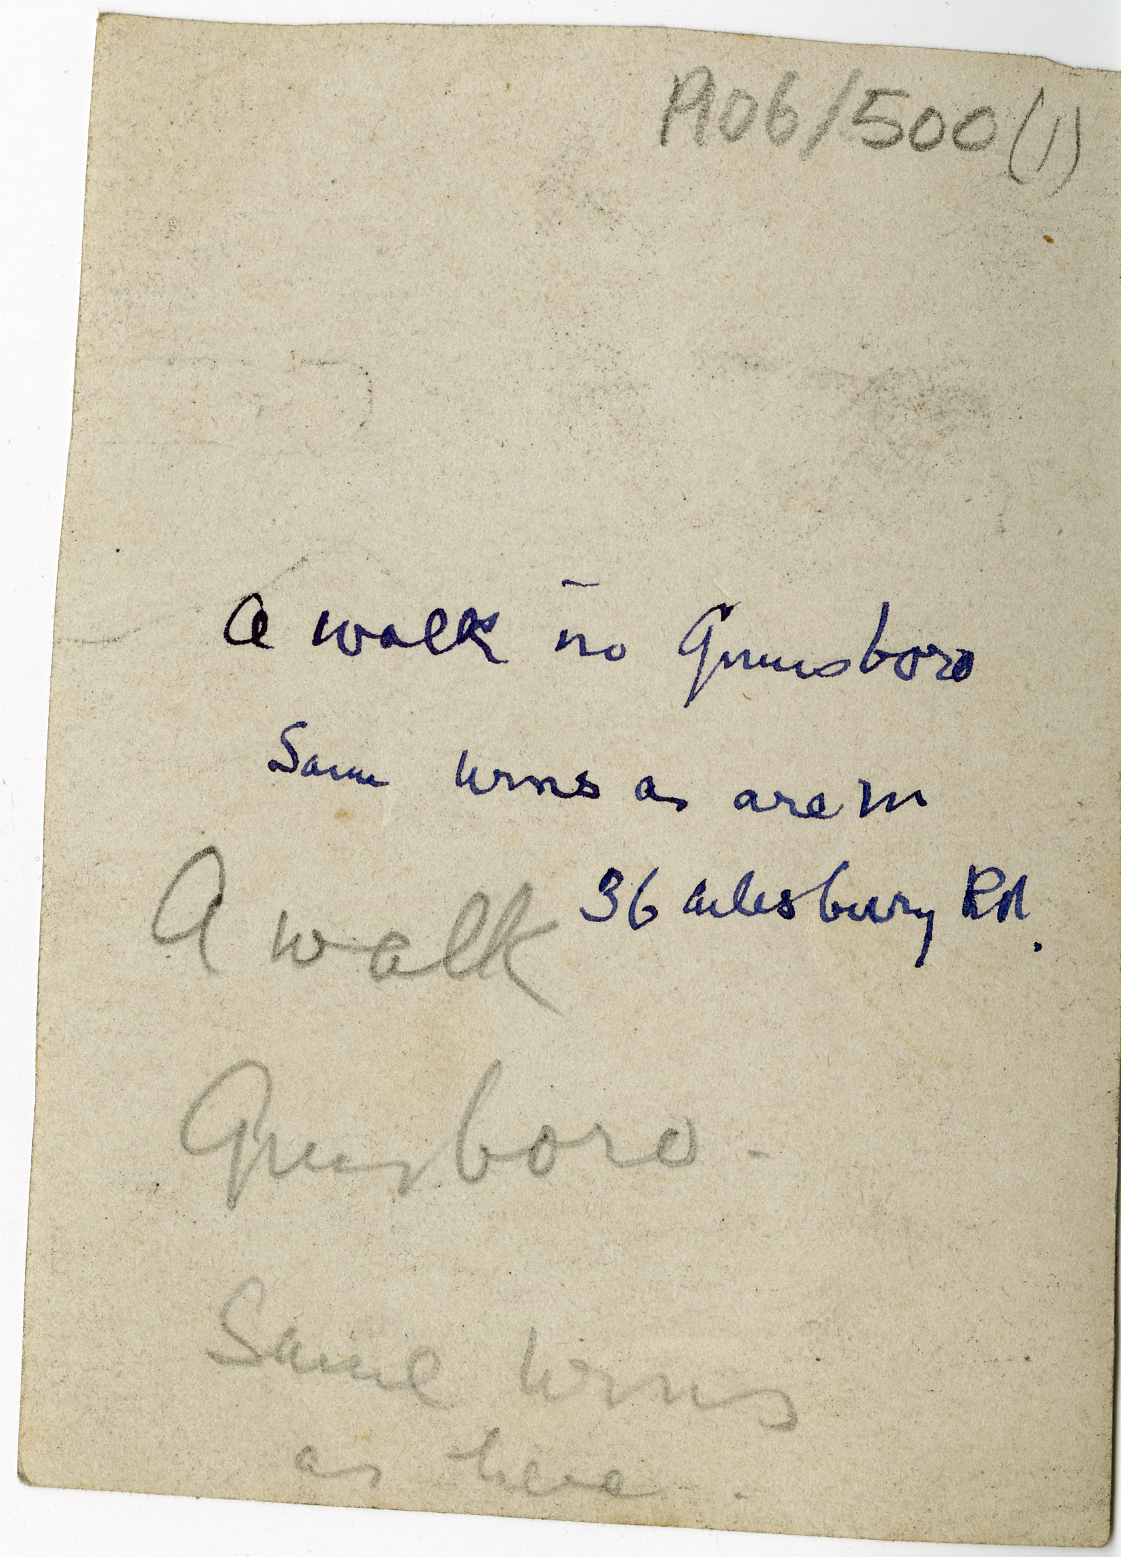 P106/500(1)
A walk in Quinsboro
Same urns as are in
36 ailesbury Rd.
A walk
Quinsboro.
Same urns
as here.